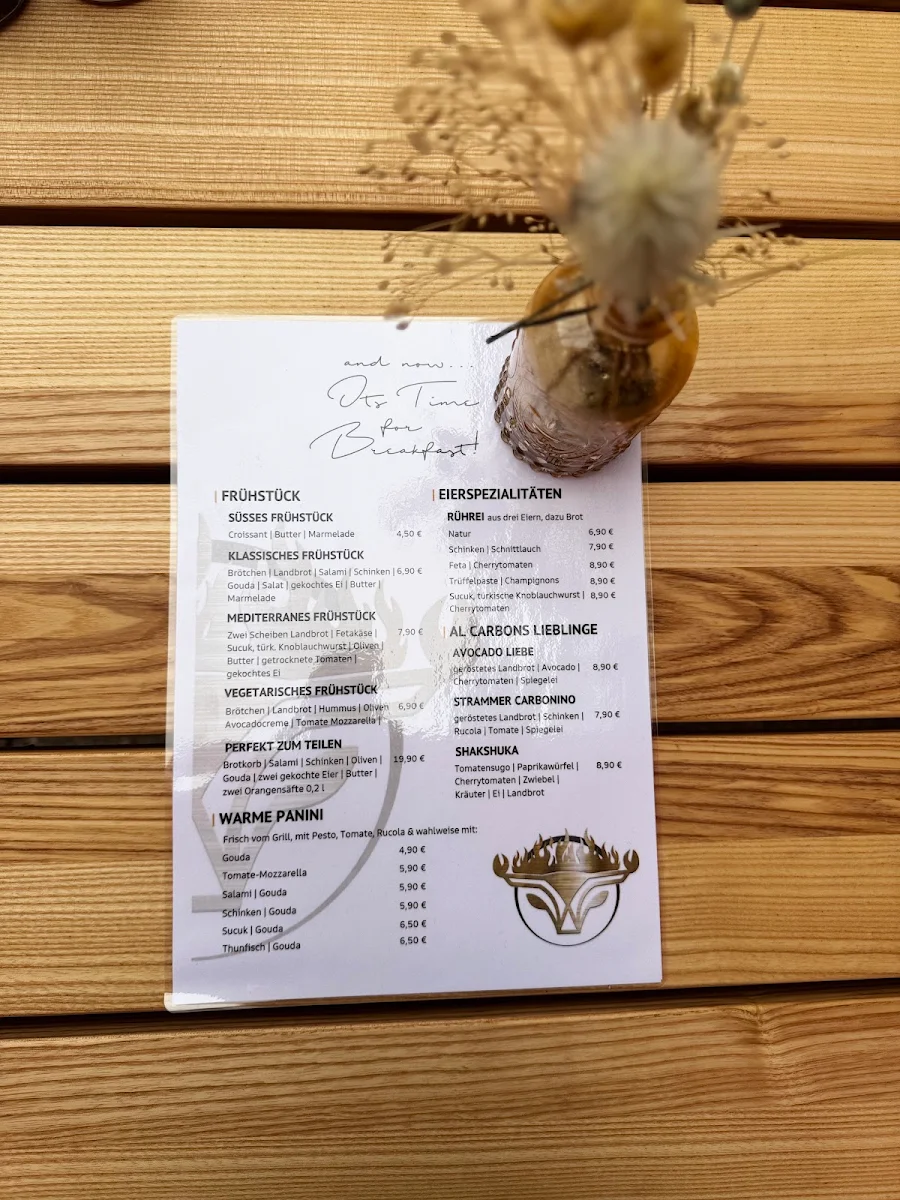 and now...
Its Time
for
Breakfast!
FRÜHSTÜCK
SÜSSES FRÜHSTÜCK
Croissant | Butter | Marmelade 4,50 €
KLASSISCHES FRÜHSTÜCK
Brötchen | Landbrot | Salami | Schinken | 6,90 €
Gouda | Salat | gekochtes Ei | Butter |
Marmelade
MEDITERRANES FRÜHSTÜCK
Zwei Scheiben Landbrot | Fetakäse | 7,90 €
Sucuk, türk. Knoblauchwurst | Oliven |
Butter | getrocknete Tomaten |
gekochtes Ei
VEGETARISCHES FRÜHSTÜCK
Brötchen | Landbrot | Hummus | Oliven 6,90 €
Avocadocreme | Tomate Mozzarella |
PERFEKT ZUM TEILEN
Brotkorb | Salami | Schinken | Oliven | 19,90 €
Gouda | zwei gekochte Eier | Butter |
zwei Orangensäfte 0,2 l
WARME PANINI
Frisch vom Grill, mit Pesto, Tomate, Rucola & wahlweise mit:
Gouda 4,90 €
Tomate-Mozzarella 5,90 €
Salami | Gouda 5,90 €
Schinken | Gouda 5,90 €
Sucuk | Gouda 6,50 €
Thunfisch | Gouda 6,50 €
EIERSPEZIALITÄTEN
RÜHREI aus drei Eiern, dazu Brot
Natur 6,90 €
Schinken | Schnittlauch 7,90 €
Feta | Cherrytomaten 8,90 €
Trüffelpaste | Champignons 8,90 €
Sucuk, türkische Knoblauchwurst | 8,90 €
Cherrytomaten
AL CARBONS LIEBLINGE
AVOCADO LIEBE
geröstetes Landbrot | Avocado | 8,90 €
Cherrytomaten | Spiegelei
STRAMMER CARBONINO
geröstetes Landbrot | Schinken | 7,90 €
Rucola | Tomate | Spiegelei
SHAKSHUKA
Tomatensugo | Paprikawürfel | 8,90 €
Cherrytomaten | Zwiebel |
Kräuter | Ei | Landbrot